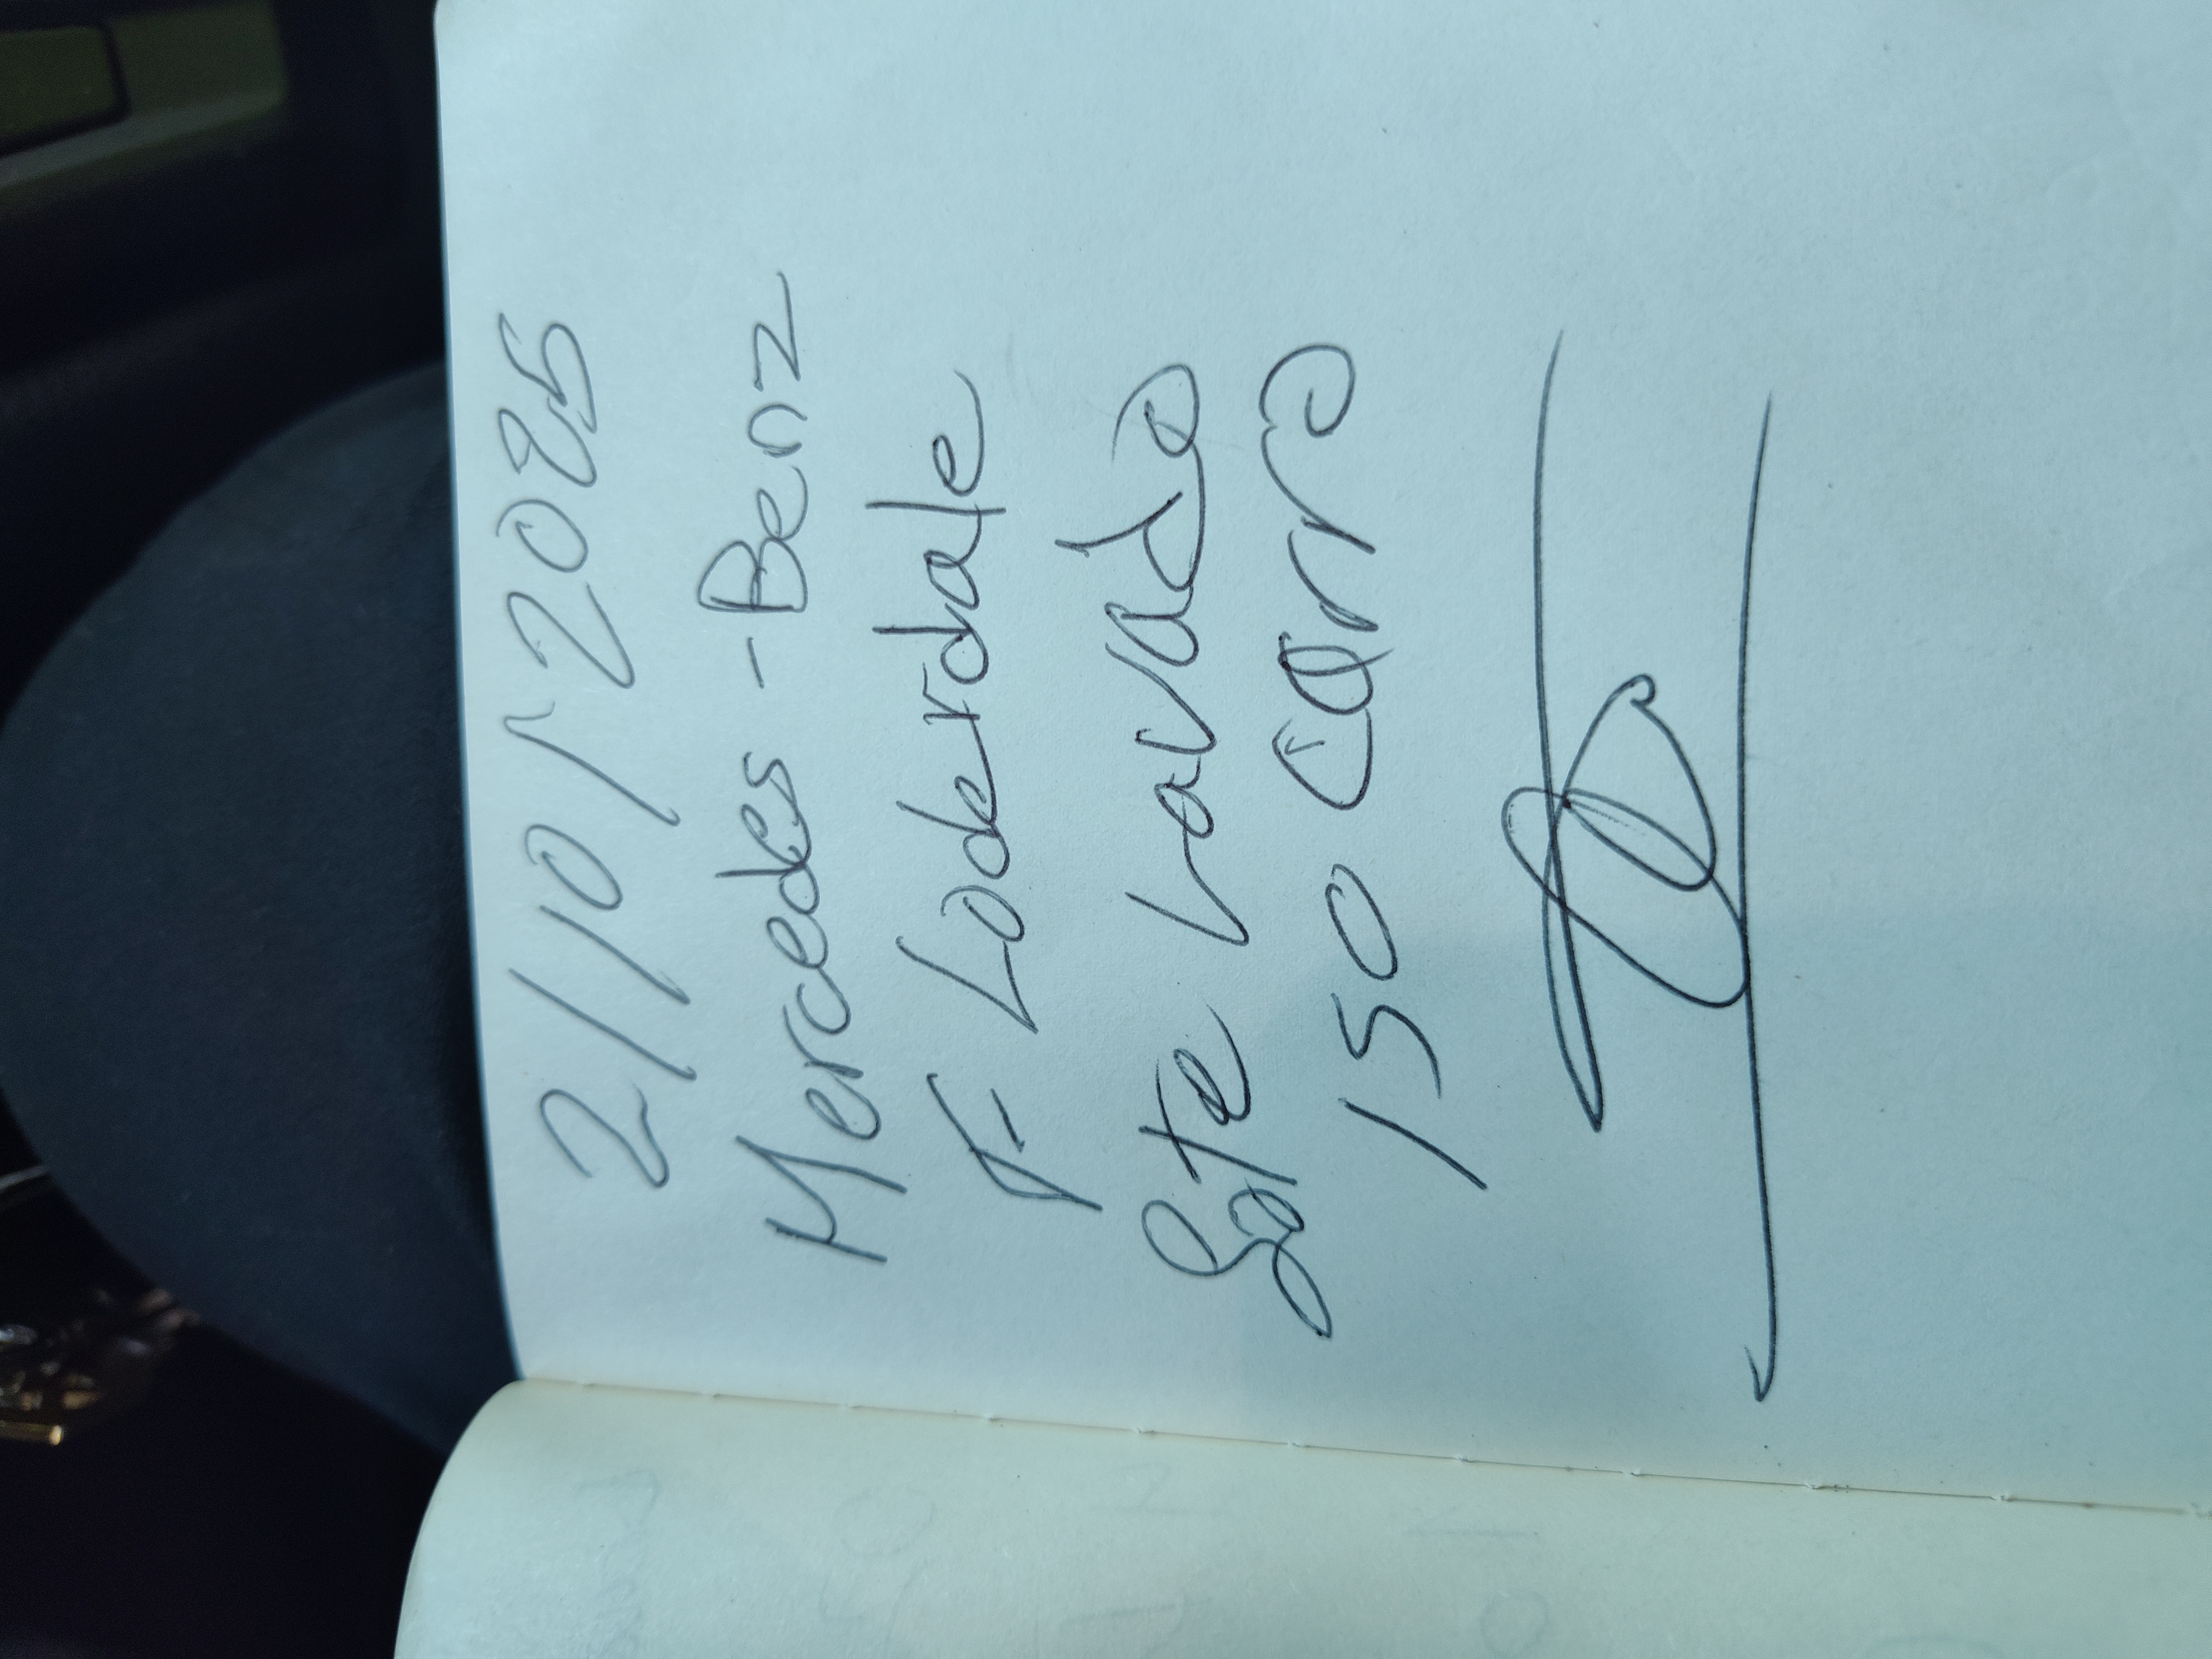 2/10/2025
Mercedes-Benz
F Loderdale
Sete Lavado
150 Carro